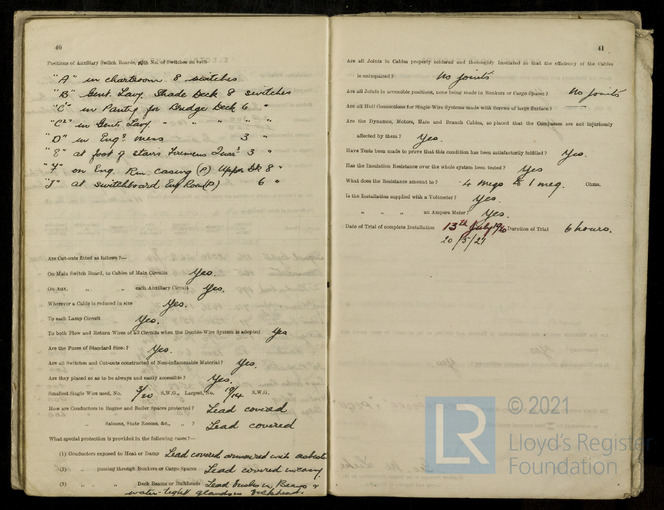 40
Positions of Auxiliary Switch Boards, with No. of Switches on each—
"A" in chartroom 8 switches
"B" Gent. Lavy. Shade Deck 8 switches
"C" in Pantry for Bridge Deck 6 "
"C2" in Gent. Lavy " " " "
"D" in Engrs mess 3 "
"E" at foot of stairs Firemens 3 "
on Eng. Rm Casing (P) Upper Dk 8 "
at Switchboard Eng Room (P) 6 "
Are Cut-outs fitted as follows?—
On Main Switch Board, to Cables of Main Circuits Yes.
On Aux. " " each Auxiliary Circuit Yes.
Wherever a Cable is reduced in size Yes.
To each Lamp Circuit Yes.
To both Flow and Return Wires of all Circuits when the Double-Wire System is adopted Yes
Are the Fuses of Standard Sizes? Yes.
Are all Switches and Cut-outs constructed of Non-inflammable Material? Yes.
Are they placed so as to be always and easily accessible? Yes.
Smallest Single Wire used, No. 3/20 S.W.G., Largest, No. 19/14 S.W.G.
How are Conductors in Engine and Boiler Spaces protected? Lead covered
" Saloons, State Rooms, &c., " ? Lead covered
What special protection is provided in the following cases?—
(1) Conductors exposed to Heat or Damp Lead covered armoured with
(2) " passing through Bunkers or Cargo Spaces Lead covered in casing
(3) " " Deck Beams or Bulkheads Lead bushes in Beams &
water-tight glands in Bulkheads.
41
Are all Joints in Cables properly soldered and thoroughly insulated so that the efficiency of the Cables
is unimpaired? No joints
Are all Joints in accessible positions, none being made in Bunkers or Cargo Spaces? No joints
Are all Hull Connections for Single-Wire Systems made with Screws of large Surface? —
Are the Dynamos, Motors, Main and Branch Cables, so placed that the Compasses are not injuriously
affected by them? Yes.
Have Tests been made to prove that this condition has been satisfactorily fulfilled? Yes.
Has the Insulation Resistance over the whole system been tested? Yes
What does the Resistance amount to? 4 megs & 1 meg. Ohms.
Is the Installation supplied with a Voltmeter? Yes.
" " " an Ampere Meter? Yes.
Date of Trial of complete Installation 13th July Duration of Trial 6 hours.
20/5/21
LR
© 2021
Lloyd's Register
Foundation